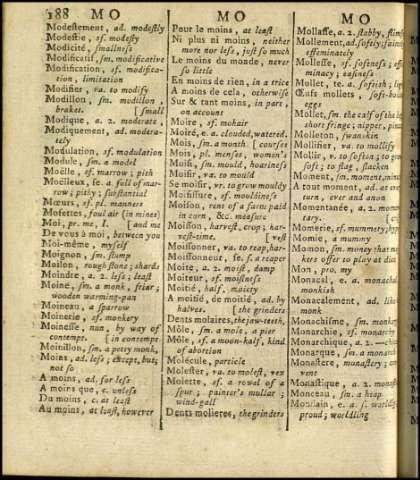 188 M O
M O
M O
Modestement, ad. modestly
Modestie, sf. modesty
Modicité, smallness
Modificatif, sm. modificative
Modification, sf. modifica-
tion, limitation
Modifier, va. to modify
Modillon, sm. modillon,
braket. [small
Modique, a. 2. moderate;
Modiquement, ad. modera-
tely
Modulation, sf. modulation
Module, a model
Moëlle, sf. marrow; pith
Moëlleux, se. a. full of mar-
row; pithy; substantial
Mœurs, sf. pl. manners
Mofettes, foul air (in mines)
Moi, pr. me, I. [and me
De vous à moi, between you
Moi-même, myself
Moignon, sm. stump
Moilon, rough stones; shards
Moindre, a. 2. less; least
Moine, sm. a monk, friar;
wooden warming-pan
Moineau, a sparrow
Moinerie, sf. monkery
Moinesse, nun, by way of
contempt. [in contempt
Moinillon, sm. a petty monk,
Moins, ad. less; except, but;
not so
A moins, ad. for less
A moins que, c. unless
Du moins, c. at least
Au moins, at least, however
Pour le moins, at least
Ni plus ni moins, neither
more nor less, just so much
Le moins du monde, never
so little
En moins de rien, in a trice
A moins de cela, otherwise
Sur & tant moins, in part,
on account
Moire, sf. mohair
Moiré, e. a. clouded, watered.
Mois, sm. a month [courses
Mois, pl. menses, women's
Moisi, sm. mould, hoariness
Moisir, va. to mould
Se moisir, vr. to grow mouldy
Moisissure, sf. mouldiness
Moison, rent of a farm paid
in corn, &c. measure
Moisson, harvest, crop; har-
vest-time. [vest
Moissonner, va. to reap, har-
Moissonneur, se. f. a reaper
Moite, a. 2. moist, damp
Moiteur, sf. moistness
Moitié, half, moiety
A moitié, de moitié, ad. by
halves, [the grinders
Dents molaires, the jaw-teeth,
Môle, sm. a mole, a pier
Môle, sf. a moon-kalf, kind
of abortion
Molécule, particle
Molester, va. to molest, vex
Molette, sf. a rowal of a
spur; painter's mullar;
wind-gall
Dents molieres, the grinders
Mollasse, a. 2. flabby,
Mollement, ad. softly,
effeminately
Mollesse, sf. softness; effe-
minacy; easiness
Mollet, te. a. softish;
Œufs mollets, soft-
eggs
Mollet, sm. the calf of the
short fringe; nipper,
Molleton, swanskin
Mollifier, va. to mollify
Mollir, v. to soften; to grow
soft; to flag, slacken
Moment, sm. moment,
A tout moment, ad. at every
turn, ever and anon
Momentanée, a. 2. momen-
tary.
Momerie, sf. mummery;
Momie, a mummy
Momon, sm. money that
kers offer to play at dice
Mon, pro. my
Monacal, e. a. monachal
monkish
Monacalement, ad. like
monk
Monachisme, sm. monkery
Monarchie, sf. monarchy
Monarchique, a. 2.
Monarque, sm. a monarch
Monastere, monastery;
vent
Monastique, a. 2. monastic
Monceau, sm. a heap
Mondain, e. a. s.
proud; worldling